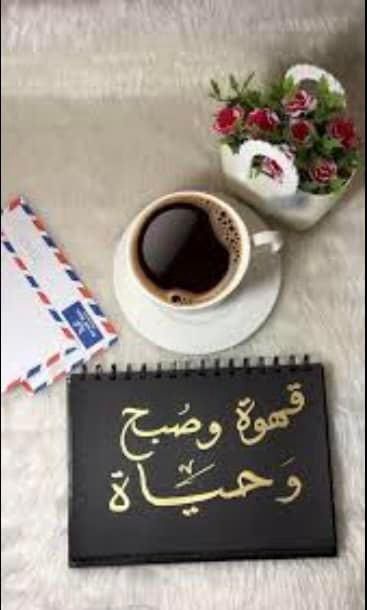 قهوة وصُبح
وَحيَـاة